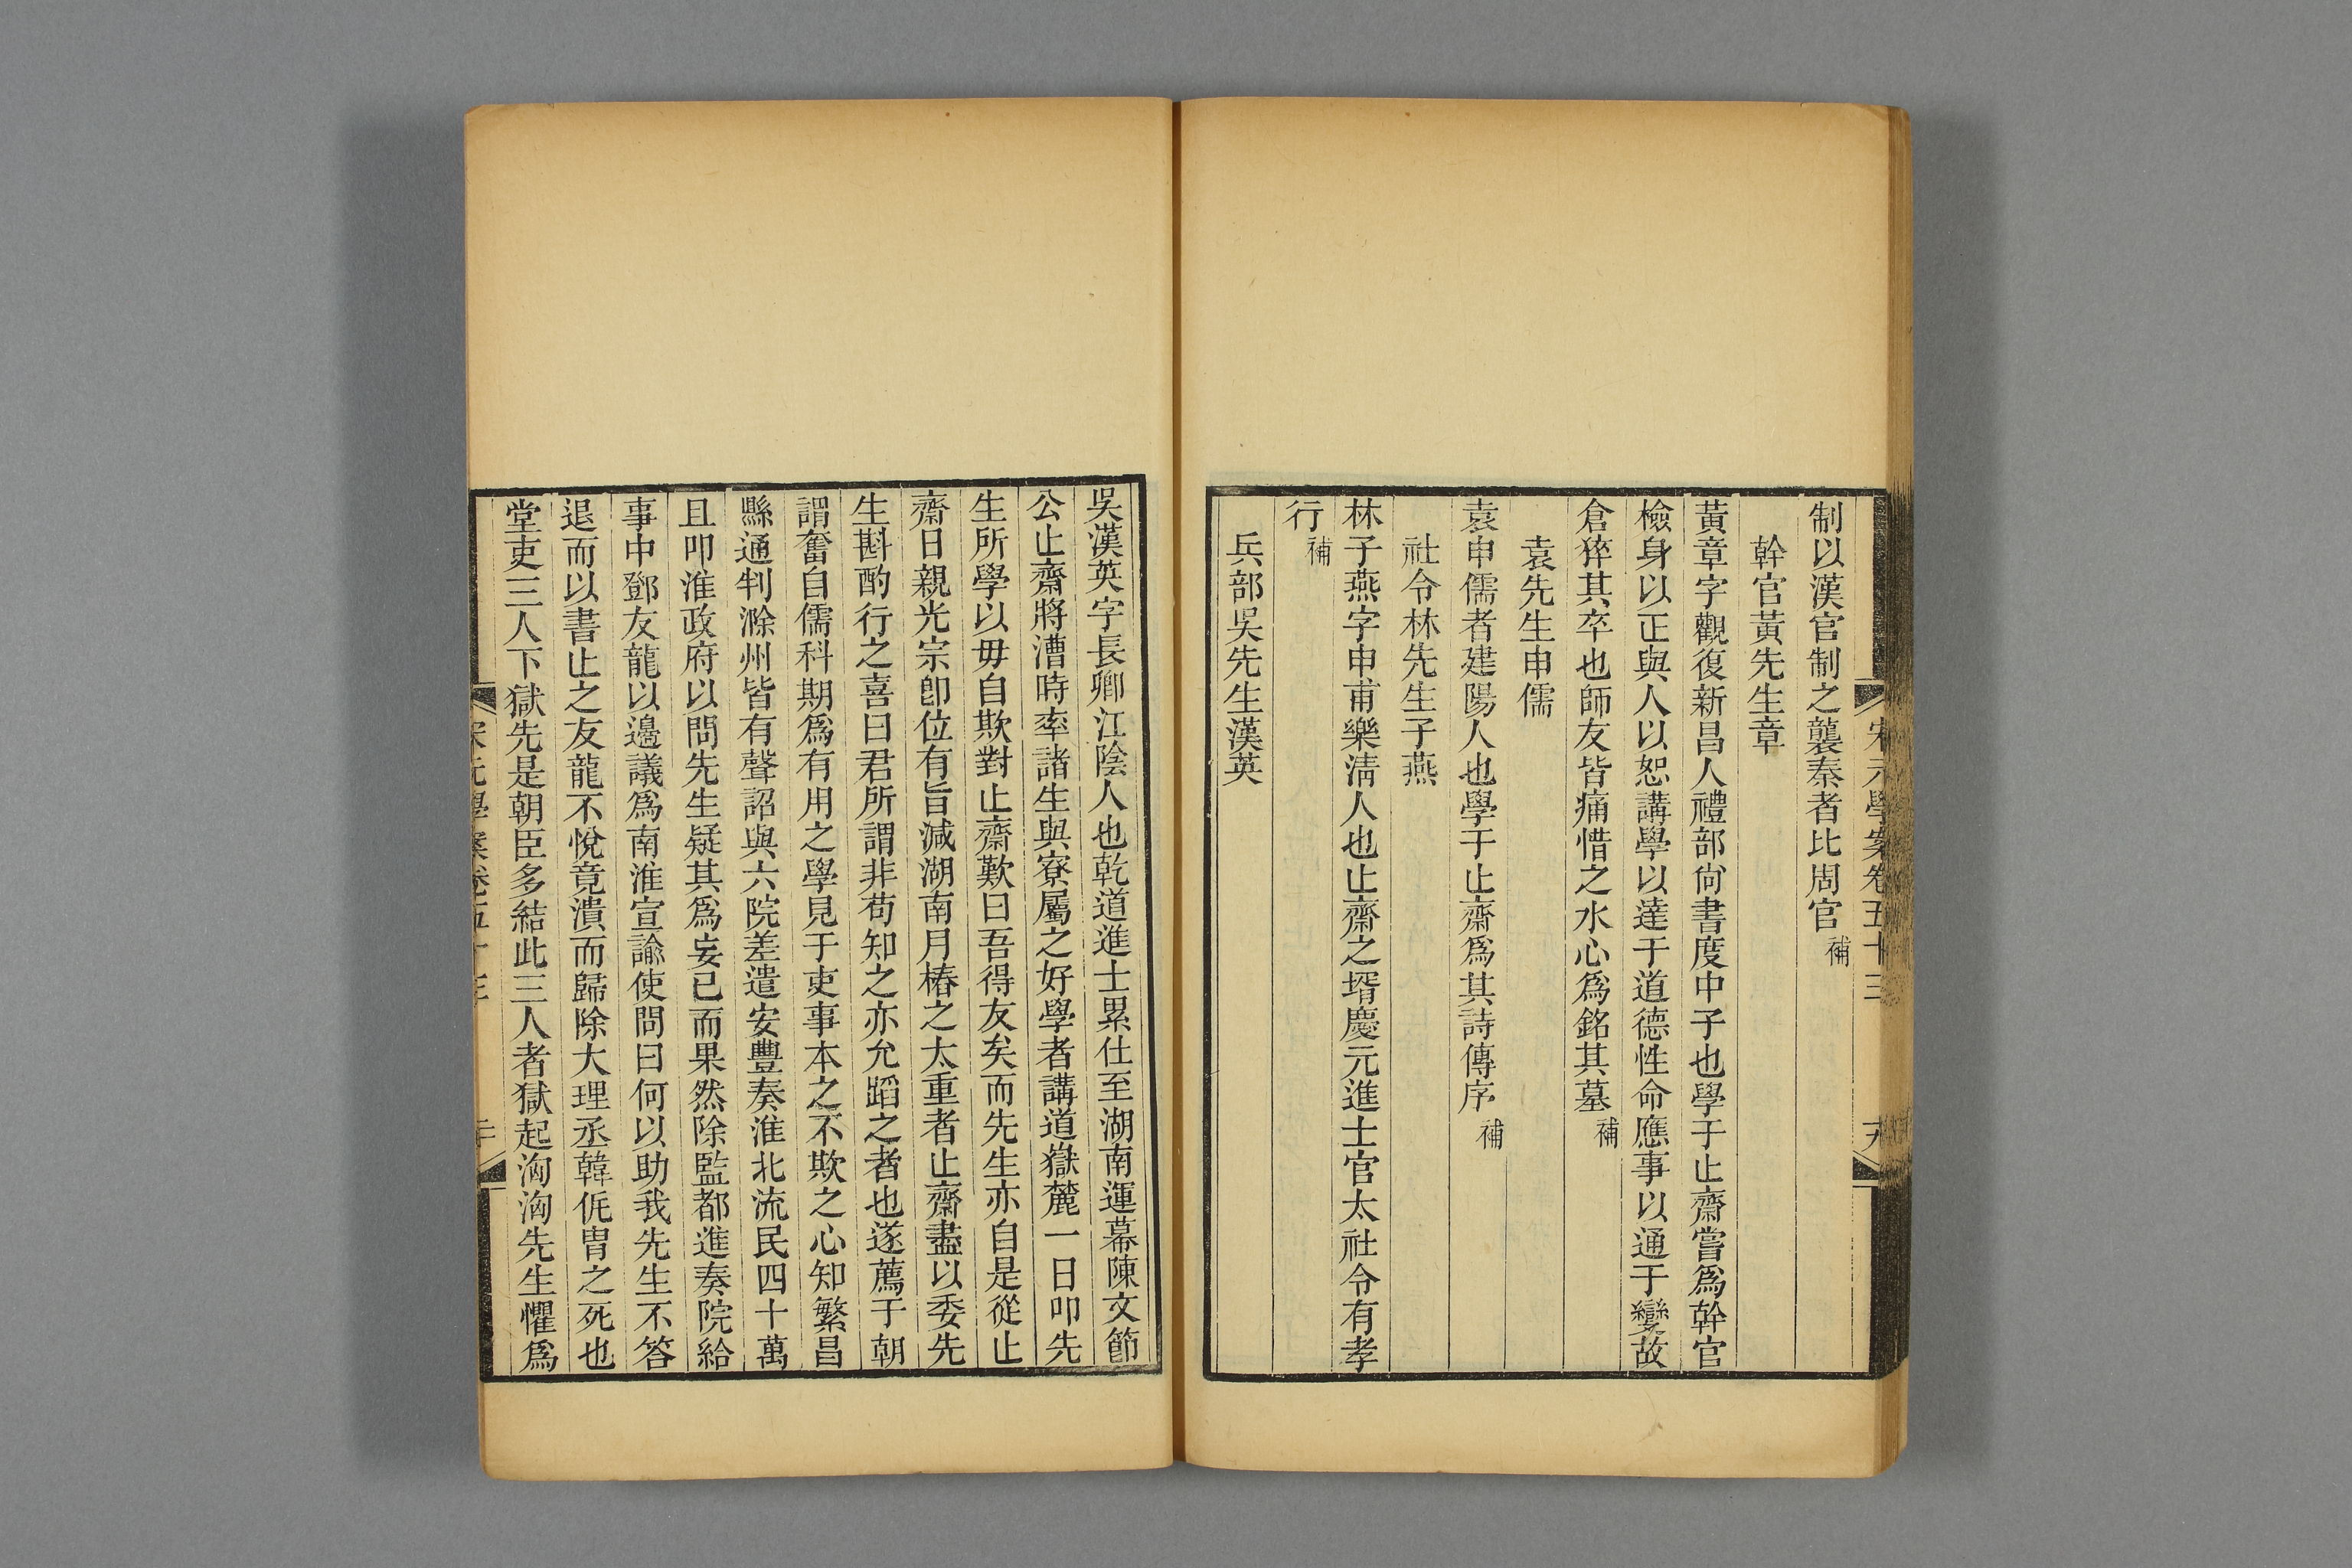 宋元學案卷五十三
制以漢官制之襲秦者比周官補
幹官黃先生章
黃章字觀復新昌人禮部尙書度中子也學于止齋嘗爲幹官
檢身以正與人以恕講學以達于道德性命應事以通于變故
倉猝其卒也師友皆痛惜之水心爲銘其墓補
袁先生申儒
袁申儒者建陽人也學于止齋爲其詩傳序補
社令林先生子燕
林子燕字申甫樂淸人也止齋之壻慶元進士官太社令有孝
行補
兵部吳先生漢英
吳漢英字長卿江陰人也乾道進士累仕至湖南運幕陳文節
公止齋將漕時率諸生與寮屬之好學者講道嶽麓一日叩先
生所學以毋自欺對止齋歎曰吾得友矣而先生亦自是從止
齋日親光宗卽位有旨減湖南月樁之太重者止齋盡以委先
生斟酌行之喜曰君所謂非苟知之亦允蹈之者也遂薦于朝
謂奮自儒科期爲有用之學見于吏事本之不欺之心知繁昌
縣通判滁州皆有聲詔與六院差遣安豐奏淮北流民四十萬
且叩淮政府以問先生疑其爲妄已而果然除監都進奏院給
事中鄧友龍以邊議爲南淮宣諭使問曰何以助我先生不答
退而以書止之友龍不悅竟潰而歸除大理丞韓侂胄之死也
堂吏三人下獄先是朝臣多結此三人者獄起洶洶先生懼爲
宋元學案卷五十三